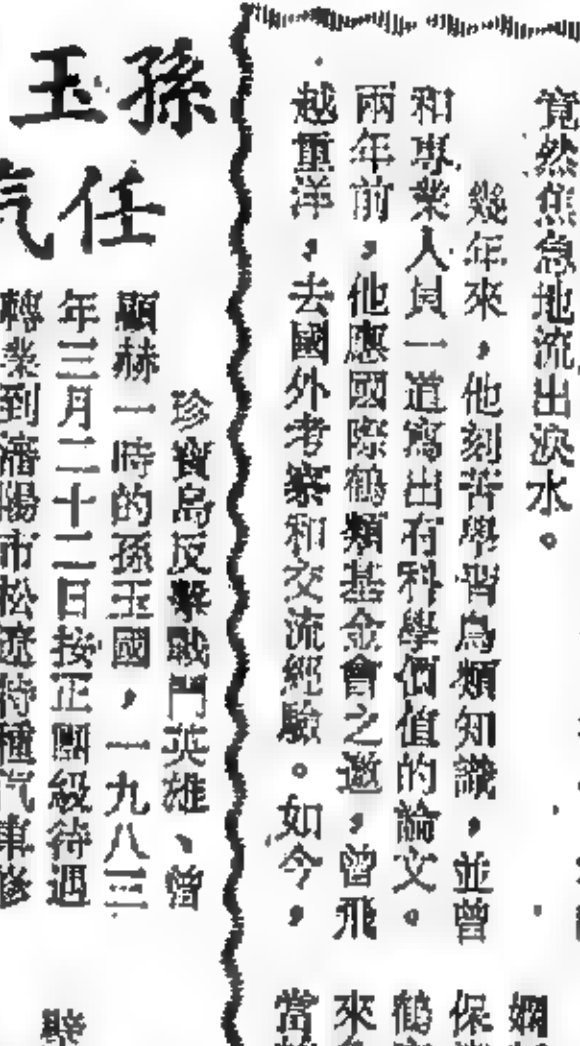 竟然焦急地流出淚水。
幾年來，他刻苦學習鳥類知識，並曾
和專業人員一道寫出有科學價值的論文。
兩年前，他應國際鶴類基金會之邀，曾飛
越重洋，去國外考察和交流經驗。如今，
嫻
保
鶴
來
當
孫玉
任汽
珍寶島反擊戰鬥英雄、曾
顯赫一時的孫玉國，一九八三
年三月二十二日按正團級待遇
轉業到瀋陽市松遼特種汽車修